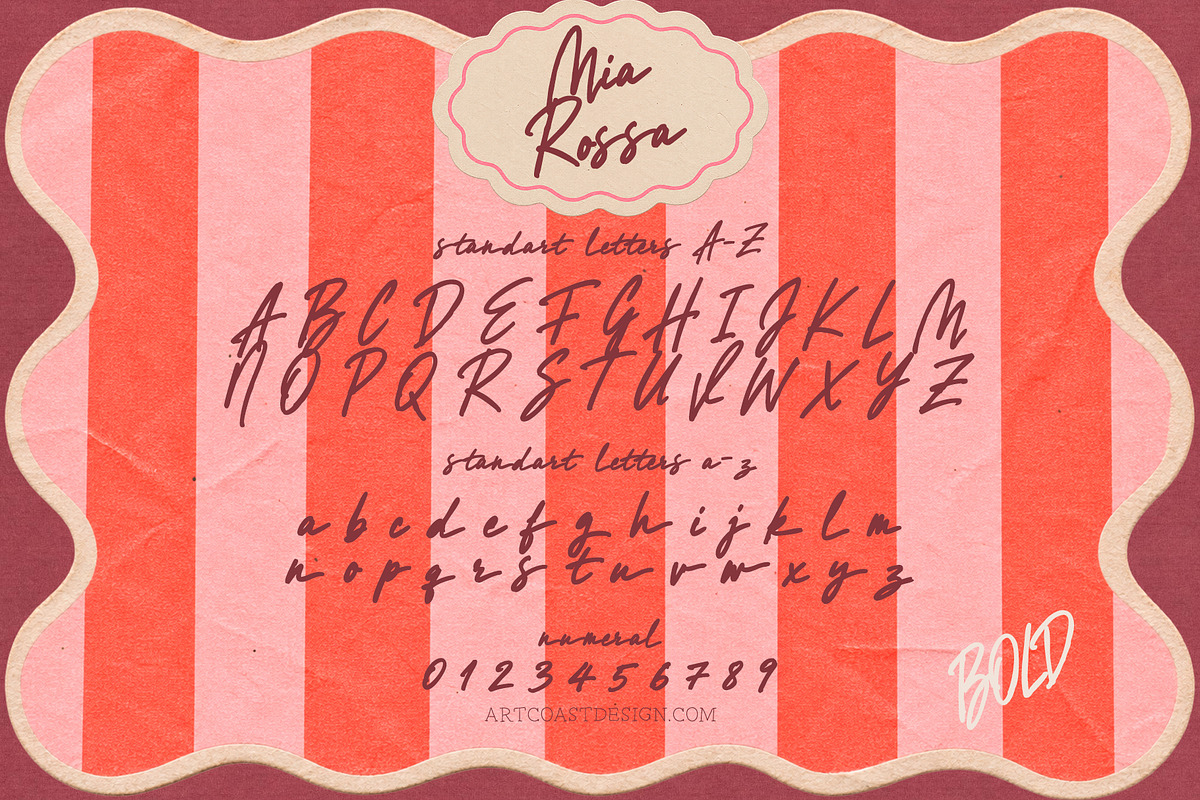 Mia
Rossa
standart letters A-Z
A B C D E F G H I J K L M
N O P Q R S T U V W X Y Z
standart letters a-z
a b c d e f g h i j k l m
n o p q r s t u v w x y z
numeral
0 1 2 3 4 5 6 7 8 9
ARTCOASTDESIGN.COM
BOLD